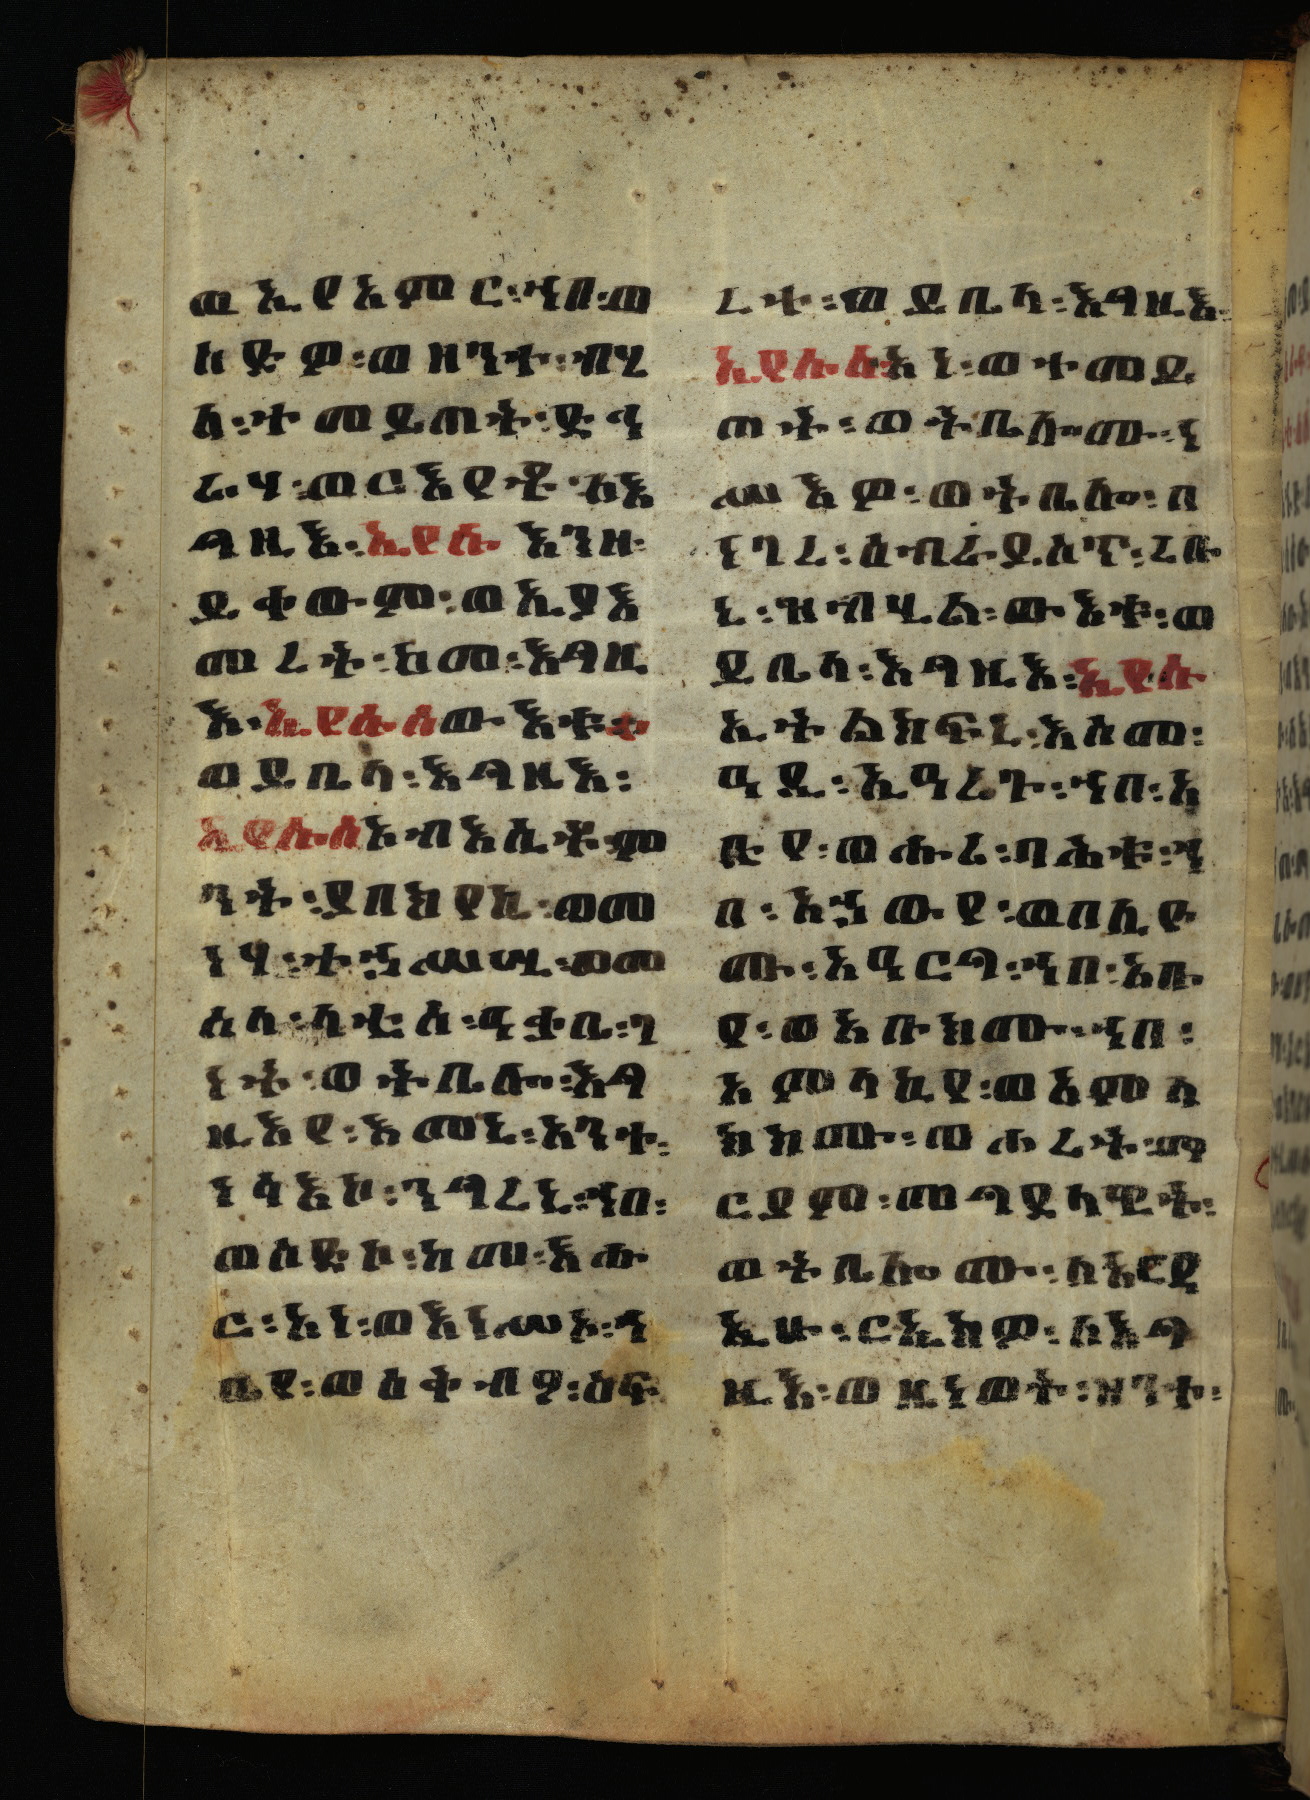 ወኢያአምር፡ኀበ፡ወ
ሰድዎ፡ወዘንተ፡ብሂ
ላ፡ተመይጠት፡ድኅ
ሬሃ፡ወርእየቶ፡ለእ
ግዚእ፡ኢየሱ እንዘ፡
ይቀውም፡ወኢያእ
መረት፡ከመ፡እግዚ
እ፡ኢየሱስውእቱ፡
ወይቤላ፡እግዚእ፡
ኢየሱስኦብእሲቶ፡ም
ንት፡ያበክየኪ፡ወመ
ነሃ፡ተኀሥሢ፡ወመ
ሰላ፡ለቲሰ፡ዓቃቤ፡ገ
ነት፡ወትቤሎ፡እግ
ዚእየ፡እመኒ፡አንተ፡
ነሳእኮ፡ንግረኒ፡ኀበ፡
ወሰድኮ፡ከመ፡እሑ
ር፡አነ፡ወእነሥኦ፡ኀ
ቤየ፡ወዕቀብዎ፡ዕፍ
ረተ፡ወይቤላ፡እግዚእ፡
ኢየሱስ፡አነ፡ወተመይ
ጠት፡ወትቤሎሙ፡ነ
ሥእዎ፡ወትቤሎ፡በ
ነገረ፡ዕብራይስጥ፡ረቡ
ኒ፡ዝብሂል፡ውእቱ፡ወ
ይቤላ፡እግዚእ፡ኢየሱ
ኢትልክፍኒ፡እስመ፡
ዓዲ፡ኢዓረጉ፡ኀበ፡አ
ቡየ፡ወሑሪ፡ባሕቱ፡ኀ
በ፡አኀውየ፡ወበሊዮ
ሙ፡አዓርግ፡ኀበ፡አቡ
የ፡ወአቡክሙ፡ኀበ፡
አምላኪየ፡ወአምላ
ክክሙ፡ወሖረት፡ማ
ርያም፡መግደላዊት፡
ወትቤሎሙ፡ለአርዳ
ኢሁ፡ርኢክዎ፡ለእግ
ዚእ፡ወዜነወት፡ዘንተ፡